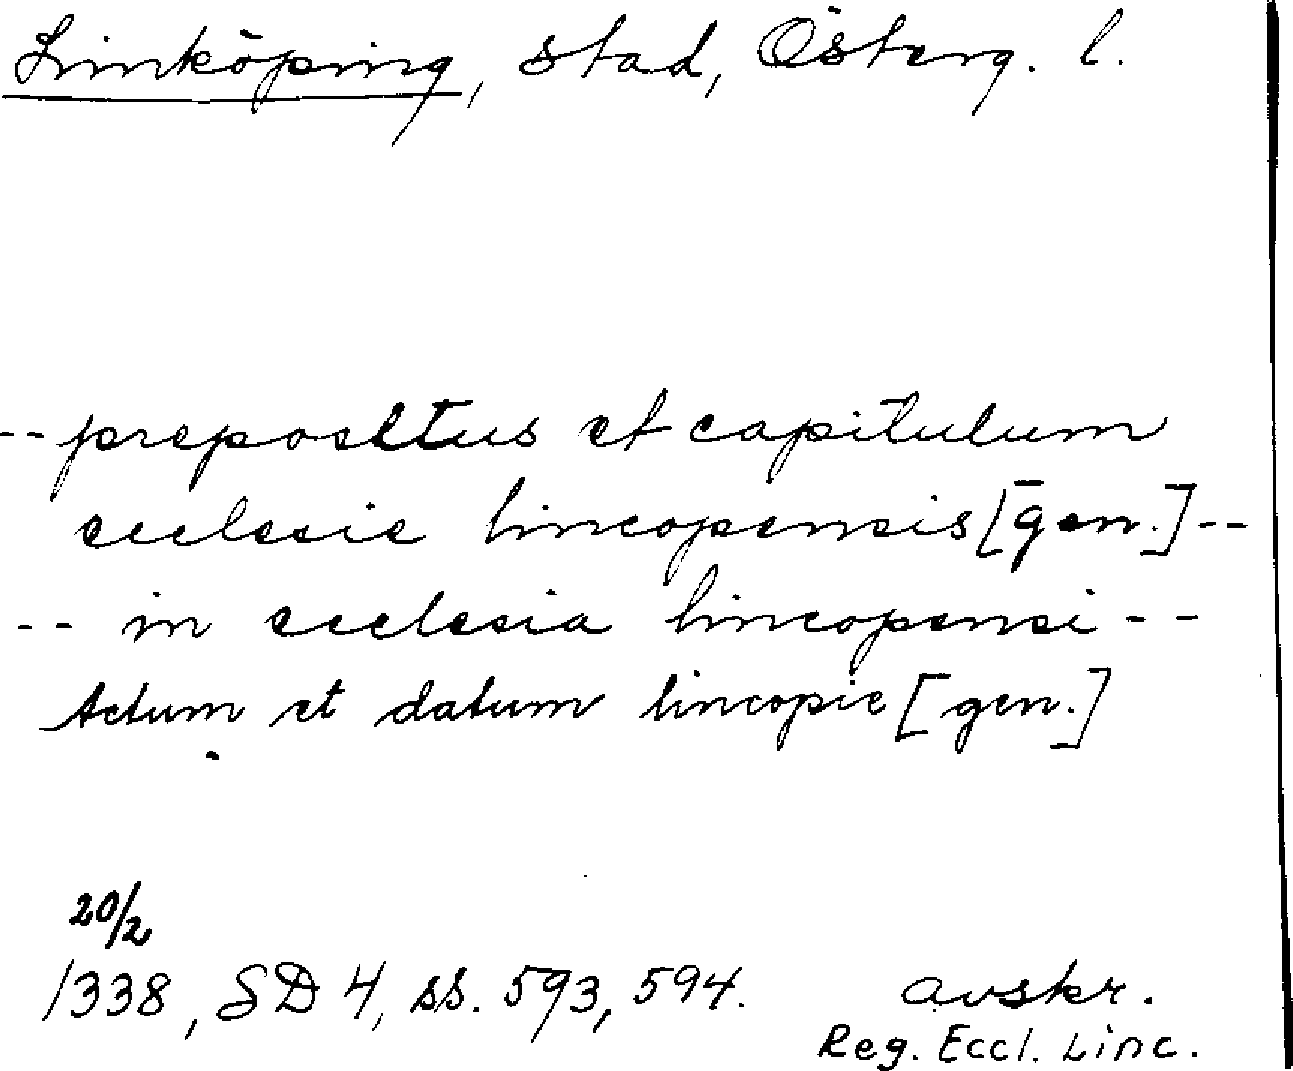 Linköping, stad, Österg. l.
-- prepositus et capitulum
ecclesie lincopensis [gen.] --
-- in ecclesia lincopensi --
Actum et datum lincopie [gen.]
20/2
1338, SD 4, ss. 593, 594. avskr.
Reg. Eccl. Linc.